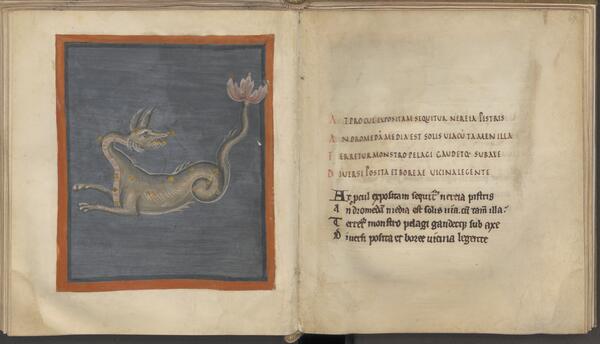 AT PROCUL EXPOSITAM SEQUITUR NEREIA PISTRIS
ANDROMEDĀ MEDIA EST SOLIS UIACŪ TAMEN ILLA
TERRETUR MONSTRO PELAGI GAUDETQ; SUBAXE
DIUERSI POSITA ET BOREAE UICINA LEGENTE
At pcul expositam sequit' nereia pistris
Andromedam media est solis uia. cū tam̄ illa:
Terret' monstro pelagi gaudetq; sub axe
Diuersi posita et boree uicina legente